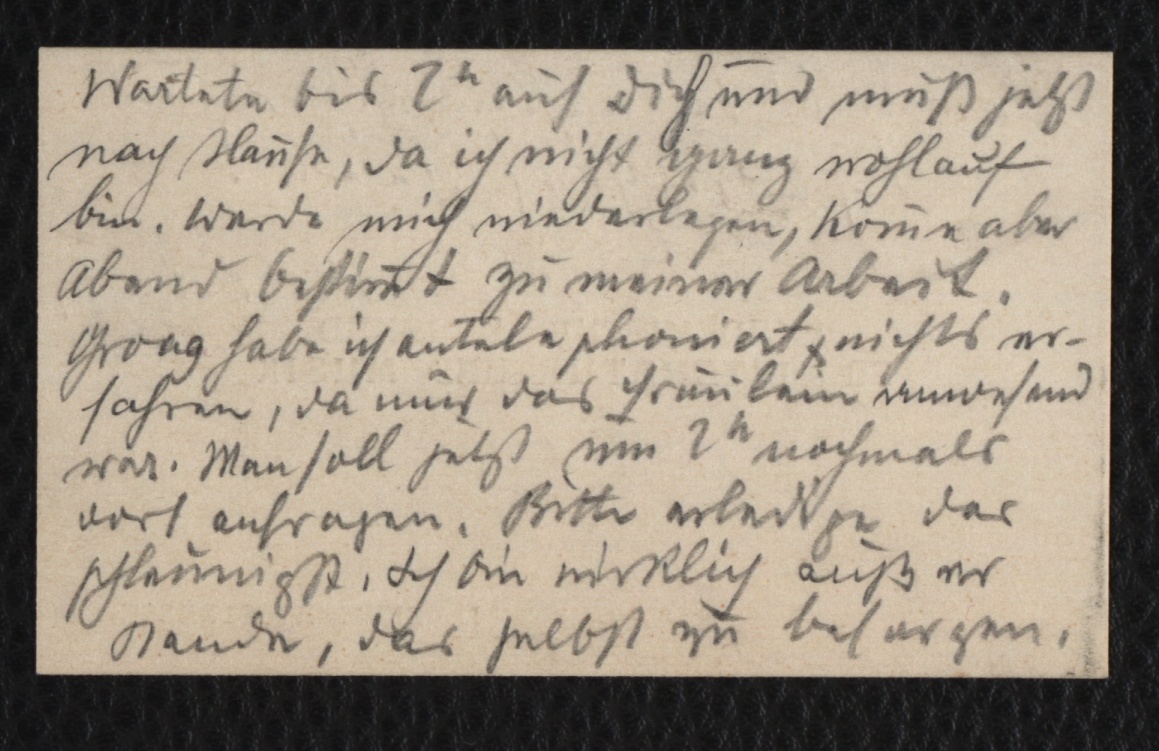 Wartete bis 2h auf Dich und muß jetzt
nach Hause, da ich nicht ganz wohlauf
bin. Werde mich niederlegen, kom̅e aber
Abend bestim̅t zu meiner Arbeit.
Groag habe ich antelephoniert, nichts er-
fahren, da nur das Fräulein anwesend
war. Man soll jetzt um 2h nochmals
dort anfragen. Bitte erledige das
schleunigst. Ich bin wirklich außer
Stande, das selbst zu besorgen.